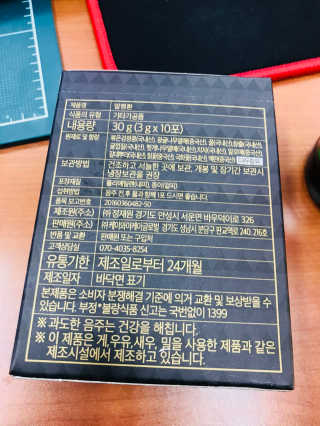 제품명 알뜸환
식품의 유형 기타가공품
내용량 30 g (3 g x 10포)
원재료 및 함량
보관방법 건조하고 서늘한 곳에 보관, 개봉 및 장기간 보관시
냉장보관을 권장
포장재질 폴리에틸렌(내피), 종이(겉피)
섭취방법 음주 전 후 물과 함께 1포 드시면 좋습니다.
품목 보고번호 20160360482-50
제조원(주소) ㈜정재원 경기도 안성시 서운면 바우덕이로 326
판매원(주소) 경기도 성남시 분당구 판교역로 240, 216호
반품 및 교환 판매원 또는 구입처
고객상담실 070-4035-8254
유통기한 제조일로부터 24개월
제조일자 바닥면 표기
본제품은 소비자 분쟁해결 기준에 의거 교환 및 보상받을 수
있습니다. 부정•불량식품 신고는 국번없이 1399
※ 과도한 음주는 건강을 해칩니다.
※ 이 제품은 게,우유,새우, 밀을 사용한 제품과 같은
제조시설에서 제조하고 있습니다.